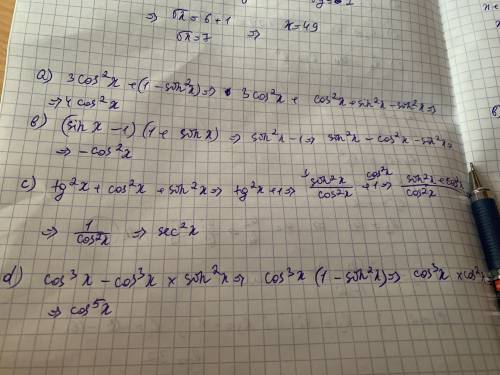 ⇒ √x = 6 + 1 ⇒ x = 49
√x = 7
a) 3cos²x + (1 - sin²x) ⇒ 3cos²x + cos²x + sin²x - sin²x ⇒
⇒ 4cos²x
b) (sin x - 1) (1 + sin x) ⇒ sin²x - 1 ⇒ sin²x - cos²x - sin²x ⇒
⇒ - cos²x
c) tg²x + cos²x + sin²x ⇒ tg²x + 1 ⇒ sin²x/cos²x + 1 ⇒ sin²x + cos²x/cos²x
⇒ 1/cos²x ⇒ sec²x
d) cos³x - cos³x × sin²x ⇒ cos³x (1 - sin²x) ⇒ cos³x × cos²x
⇒ cos⁵x